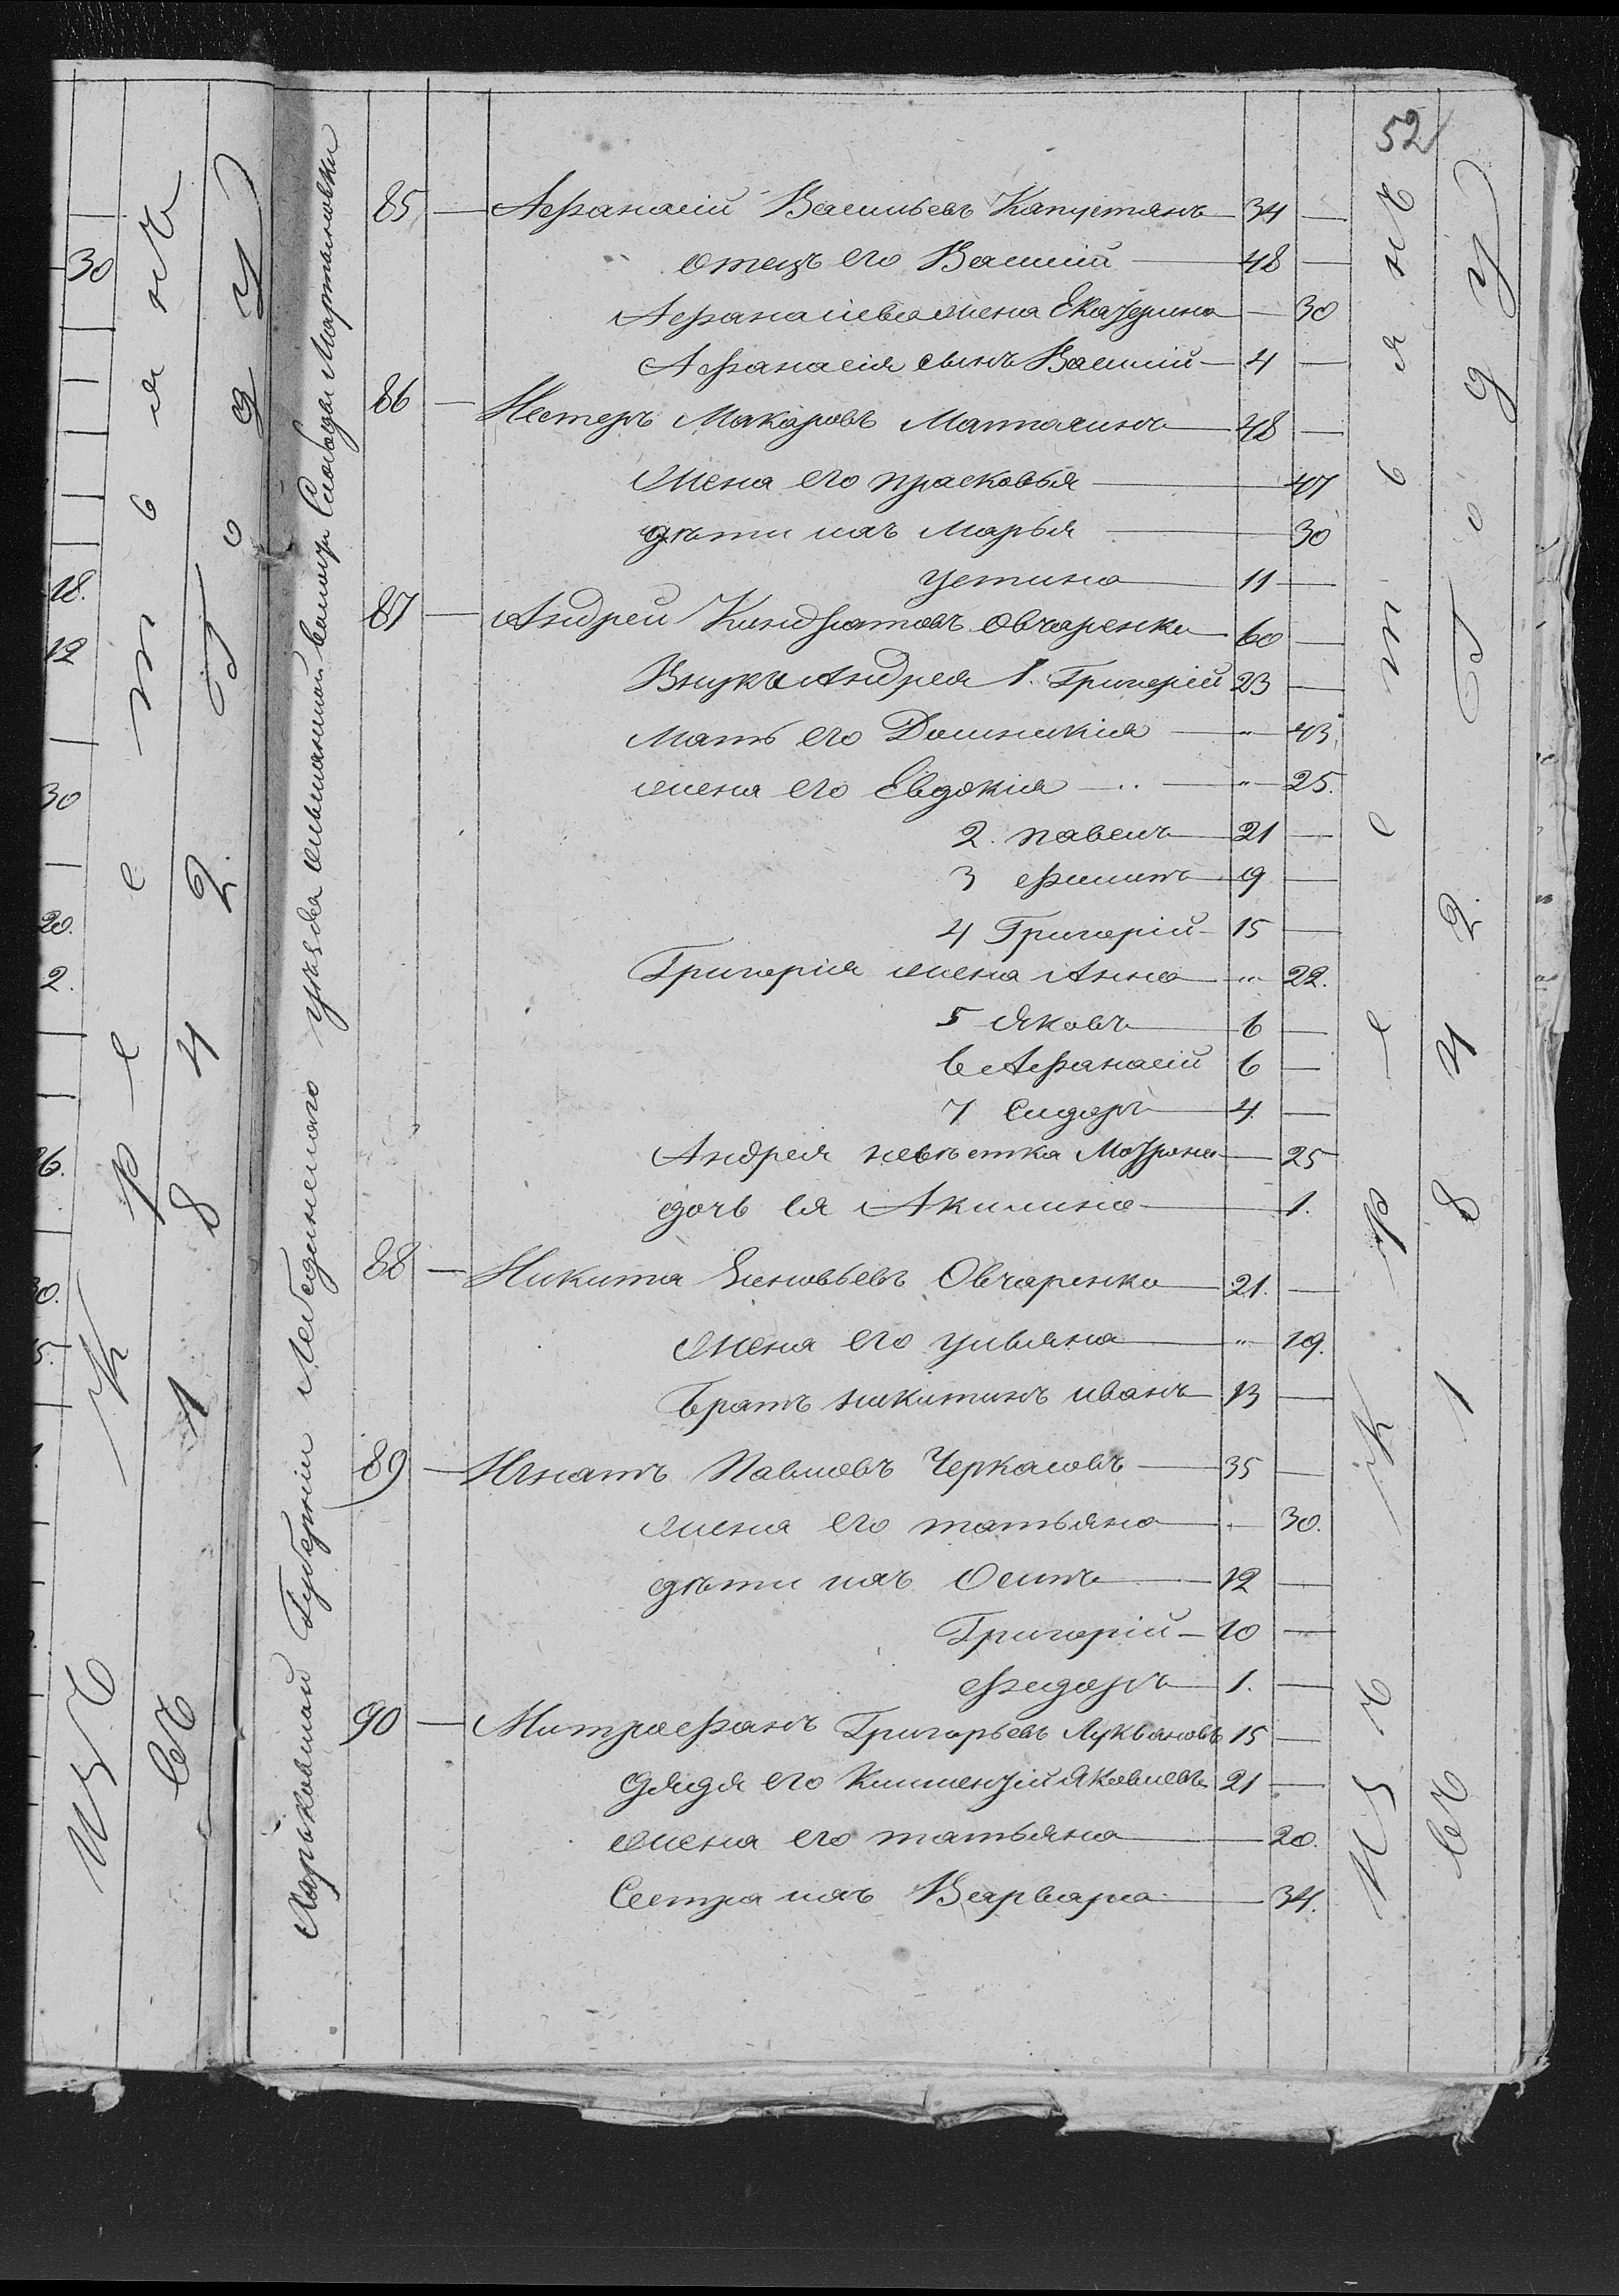 52
Харьковской Губерніи Лебединскаго уѣзда Слободы Мартыновки
85 — Афанасій Васильевъ Капустянъ — 34 —
отецъ его Василій — 48 —
Афанасіева жена Екатерина — 30
Афанасія сынъ Василій — 4 —
86 — Нестеръ Макаровъ — 48 —
жена его прасковья — 47
дѣти ихъ Марья — 30
устина — 11 —
87 — Андрей Киндратовъ Овчаренко — 60 —
Внуки Андрея 1. Григорій 23 —
мать его Домникія — " — 43
жена его Евдокія — " — 25.
2. павелъ — 21 —
3 филипъ — 19 —
4 Григорій — 15 —
Григорія жена Анна — " — 22.
5 Яковъ — 6 —
6 Афанасій 6 —
7 Сидоръ — 4. —
Андрея невѣстка Мотрона — 25
дочь ея Акилина — 1.
88 — Никита Зиновьевъ Овчаренко — 21. —
жена его ульяна — " — 19.
братъ никитинъ иванъ 13 —
89 — Игнатъ Павловъ Черкасовъ — 35 —
жена его татьяна — 30.
дѣти ихъ Осипъ — 12 —
Григорій — 10 —
Федоръ — 1. —
90 — Митрофанъ Григорьевъ Лукьяновъ 15 —
дядя его Климентій Яковлевъ 21 —
жена его татьяна — 20.
Сестра ихъ Варвара — 34.
Изъ крестьянъ
въ 1842 году
30
18.
12
30
20.
2.
26.
30.
5.
Изъ крестьянъ
въ 1842 году